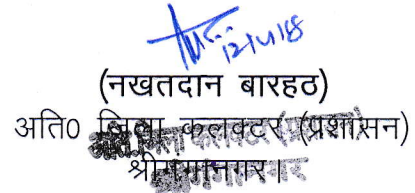 12/4/18
(नखतदान बारहठ)
अति0 जिला कलक्टर (प्रशासन)
श्रीगंगानगर।